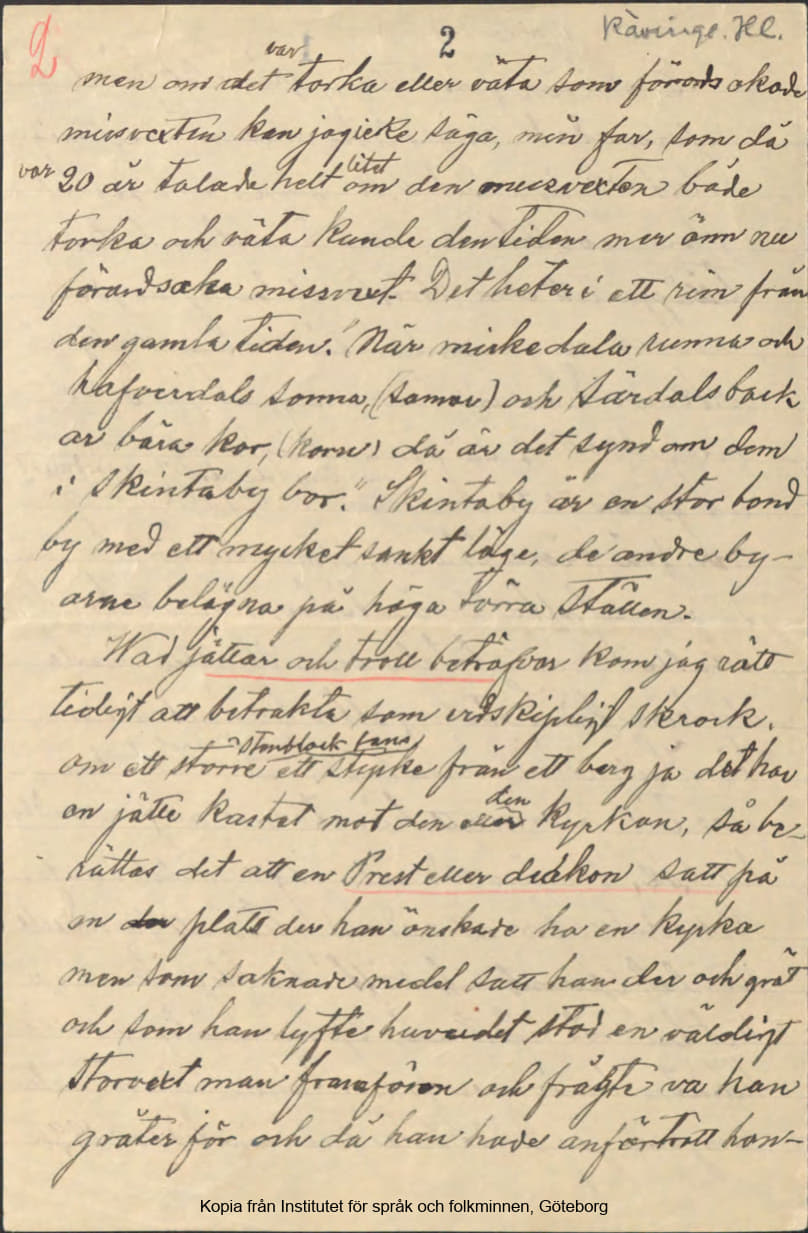 2
2
Rävinge. Hl.
var
men om det torka eller väta som förordsakade
missvexten kan jag icke säga, min far, som då
var 20 år talade helt litet om den missvexten både
torka och väta kunde den tiden mer änn nu
förordsaka missvext. Det heter i ett rim från
den gamla tiden. "När mickedala runna och
hafverdals somma, (samar) och Särdals back
ar bära kor, (korn) då är det synd om dem
i Skintaby bor." Skintaby är en stor bond
by med ett mycket sankt läge, de andre by-
arne belägna på höga torra ställen.
Wad jättar och troll beträfvar kom jag rätt
tidigt att betrakta som vidskipligt skrock.
stenblock fans
om ett större ett stycke från ett berg ja det har
en jätte kastat mot den eller den kyrkan, så be-
rättas det att en Prest eller diakon satt på
en der plats der han önskade ha en kyrka
men som saknade medel satt han der och grät
och som han lyfte huvudet stod en väldigt
storvext man framför en och frågte va han
gråter för och då han hade anförtrott hon-
Kopia från Institutet för språk och folkminnen, Göteborg